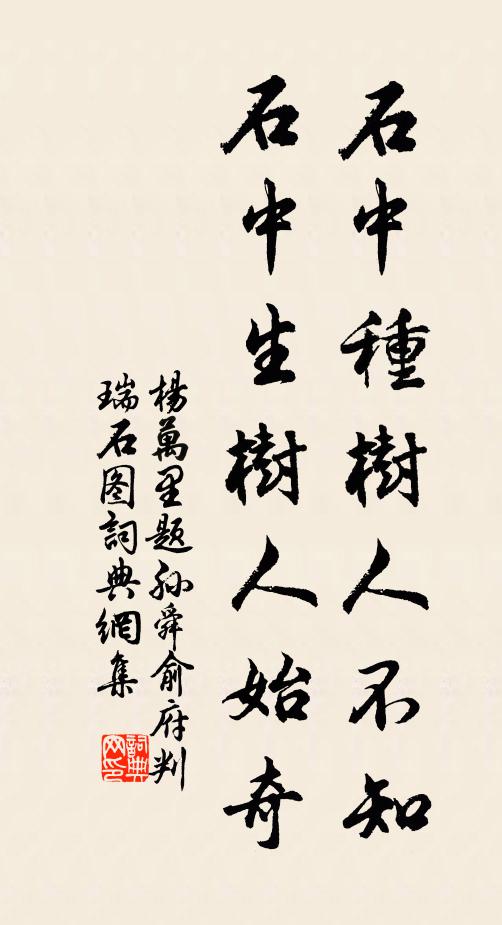 石中種樹人不知
石中生樹人始奇
楊萬里题孫舜俞府判
瑞石图詞典網集
詞典
网印